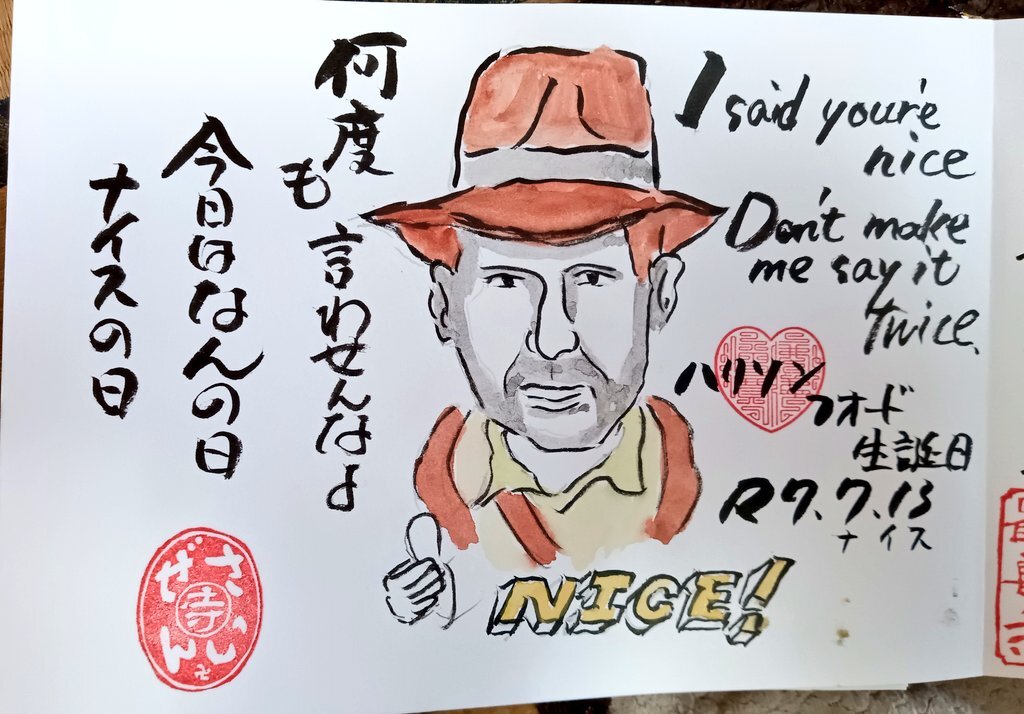 何度も言わせんなよ
今日はなんの日
ナイスの日
I said you're
nice
Don't make
me say it
twice.
ハリソン
フォード
生誕日
R7.7.13
ナイス
NICE!
さい
ぜん
寺
卍